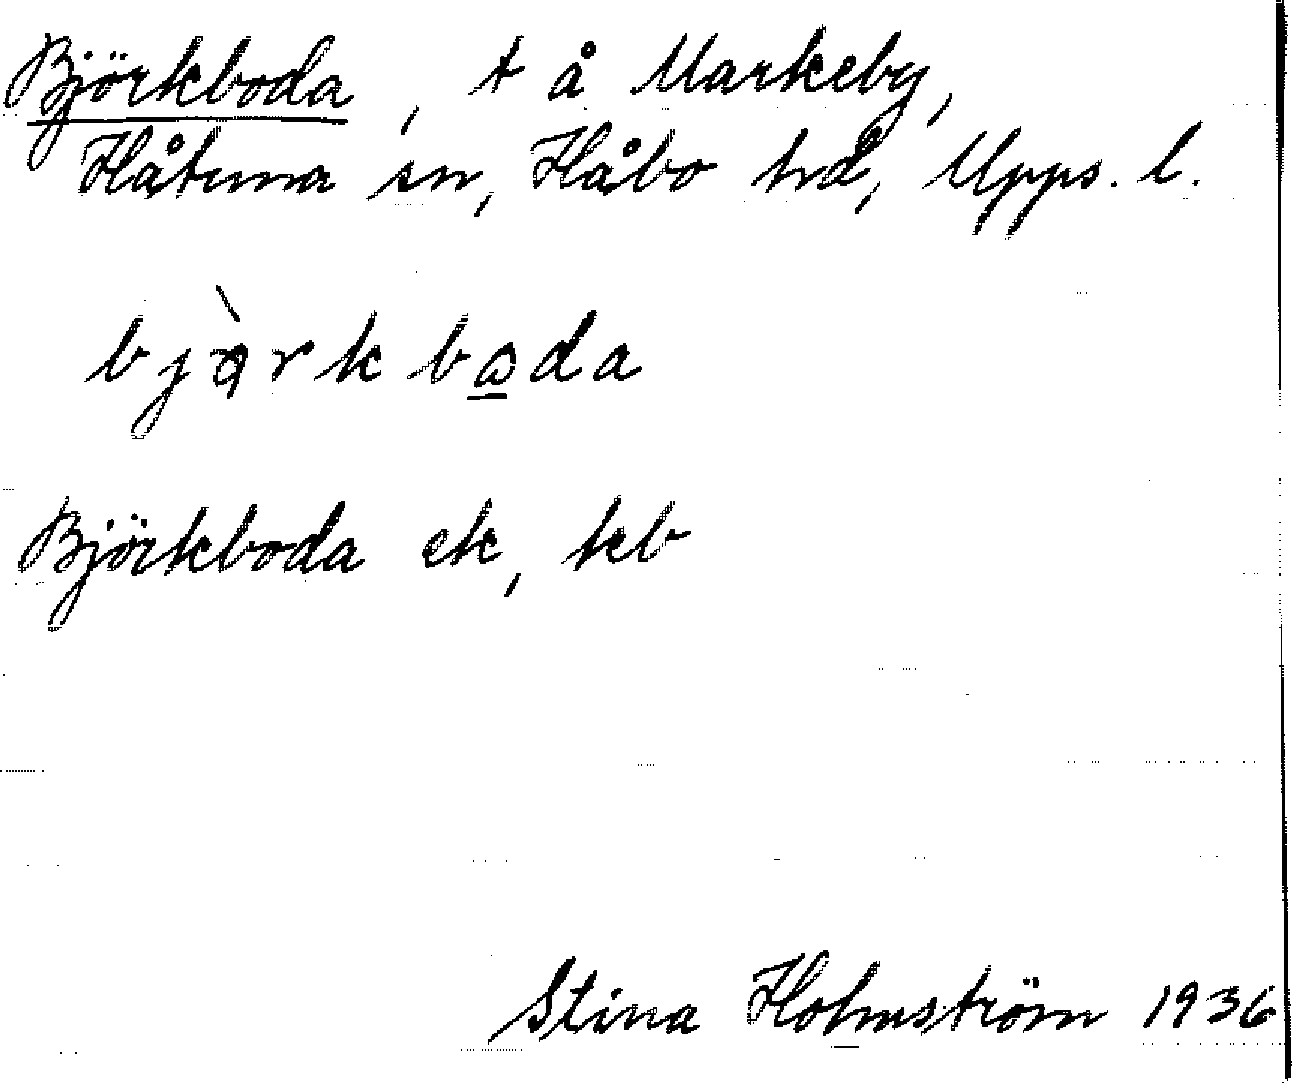 Björkboda, t å Markeby,
Håtuna sn, Håbo hd, Upps. l.
bjòrkboda
Björkboda ek, kb
Stina Holmström 1936